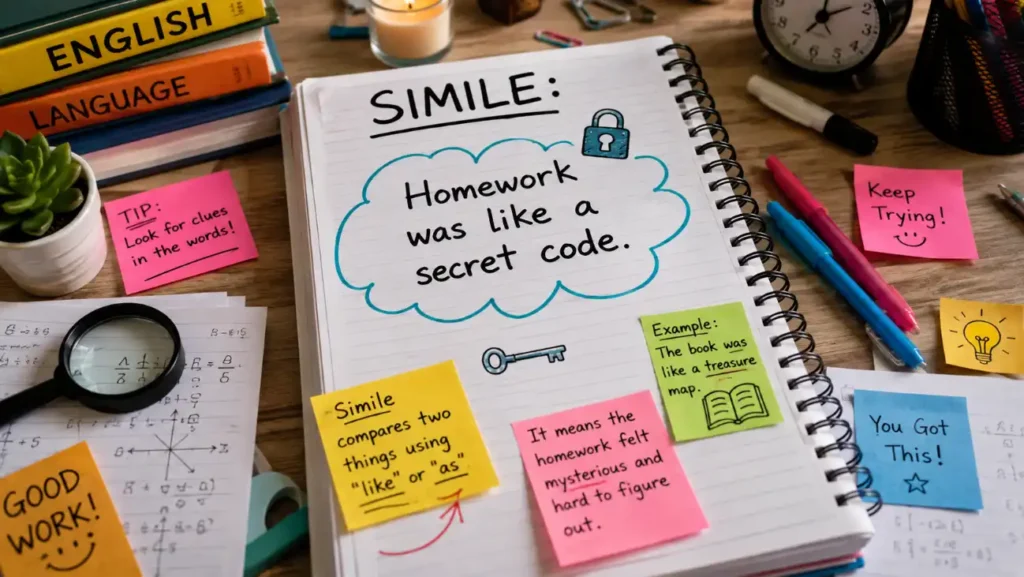 ENGLISH
LANGUAGE
SIMILE:
Homework
was like a
secret code.
TIP:
Look for clues
in the words!
Keep
Trying!
Example:
The book was
like a treasure
map.
Simile
compares two
things using
"like" or "as"
It means the
homework felt
mysterious and
hard to figure
out.
You Got
This!
GOOD
WORK!